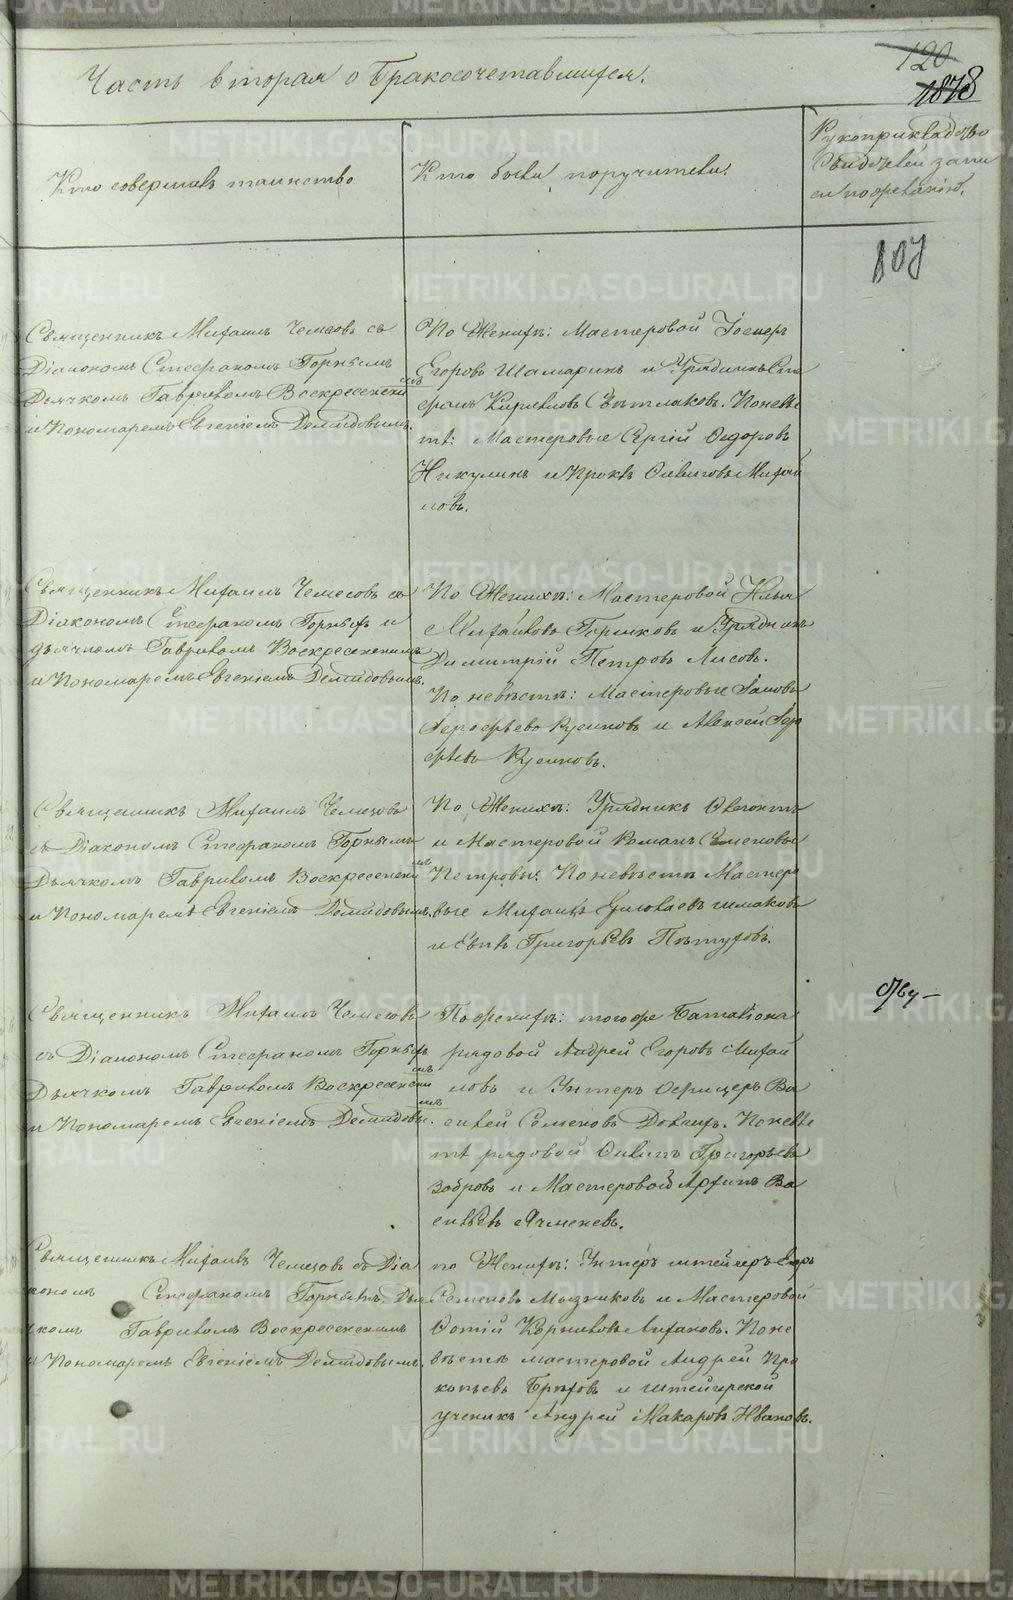 120
1878
Часть вторая о Бракосочетавшихся.
Кто совершилъ таинство
Кто были поручители.
Рукоприкладство
Свидѣтелей запи
си по желанію.
807
Священникъ Михаилъ Чемесовъ съ
Діакономъ Стефаномъ Горныхъ
Дьячкомъ Гавриломъ Воскресенски
мъ
и Пономаремъ Евгеніемъ Демидовымъ.
По Женихѣ: Мастеровой
Егоровъ Шамаринъ и Урядникъ Сте
фанъ Кириловъ Свѣтлаковъ. Поневѣс
тѣ: Мастеровые Сергій Федоровъ
Никулинъ и Проклъ Михаи
ловъ.
Священникъ Михаилъ Чемесовъ съ
Діакономъ Стефаномъ Горныхъ и
дьячкомъ Гавриломъ Воскресенскимъ
и Пономаремъ Евгеніемъ Демидовымъ.
По Женихѣ: Мастеровой Илья
Михайловъ и Урядникъ
Димитрій Петровъ Лисовъ.
По невѣстѣ: Мастеровые
и Алексей
Русиновъ.
Священникъ Михаилъ Чемесовъ
съ Діакономъ Стефаномъ Горнымъ
Дьячкомъ Гавриломъ Воскресенски
мъ
и Пономаремъ Евгеніемъ Демидовымъ.
По Женихѣ: Урядникъ
и Мастеровой Романъ Семеновы
Петровы: По невѣстѣ Мастеро
вые Михаилъ
и Григорьевъ Пѣтуховъ.
Священникъ Михаилъ Чемесовъ
съ Діакономъ Стефаномъ Горныхъ
Дьячкомъ Гавриломъ Воскресенски
мъ
и Пономаремъ Евгеніемъ Демидовы
мъ.
По женихѣ: тогоже Баталіона
рядовой Андрей Егоровъ Михай
ловъ и Унтеръ Офицеръ Ва
силей Семеновъ Поневѣс
тѣ рядовой Григорьевъ
Зобровъ и Мастеровой Архипъ Ва
сильевъ Ячменевъ.
Священникъ Михаилъ Чемесовъ съ Діа
кономъ Стефаномъ Горныхъ, Дья
чкомъ Гавриломъ Воскресенскимъ
и Пономаремъ Евгеніемъ Демидовымъ.
по Женихѣ: Унтеръ штейгеръ Егоръ
Семеновъ Мызниковъ и Мастеровой
Фотій Корниловъ. Поне
вѣстѣ мастеровой Андрей Про
копьевъ и штейгерской
ученикъ Андрей Макаровъ Ивановъ.
METRIKI.GASO-URAL.RU